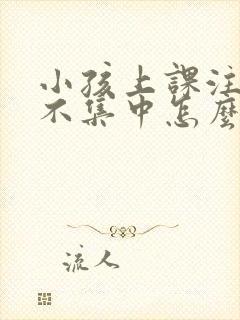 小孩上課注
不集中怎麼
流人